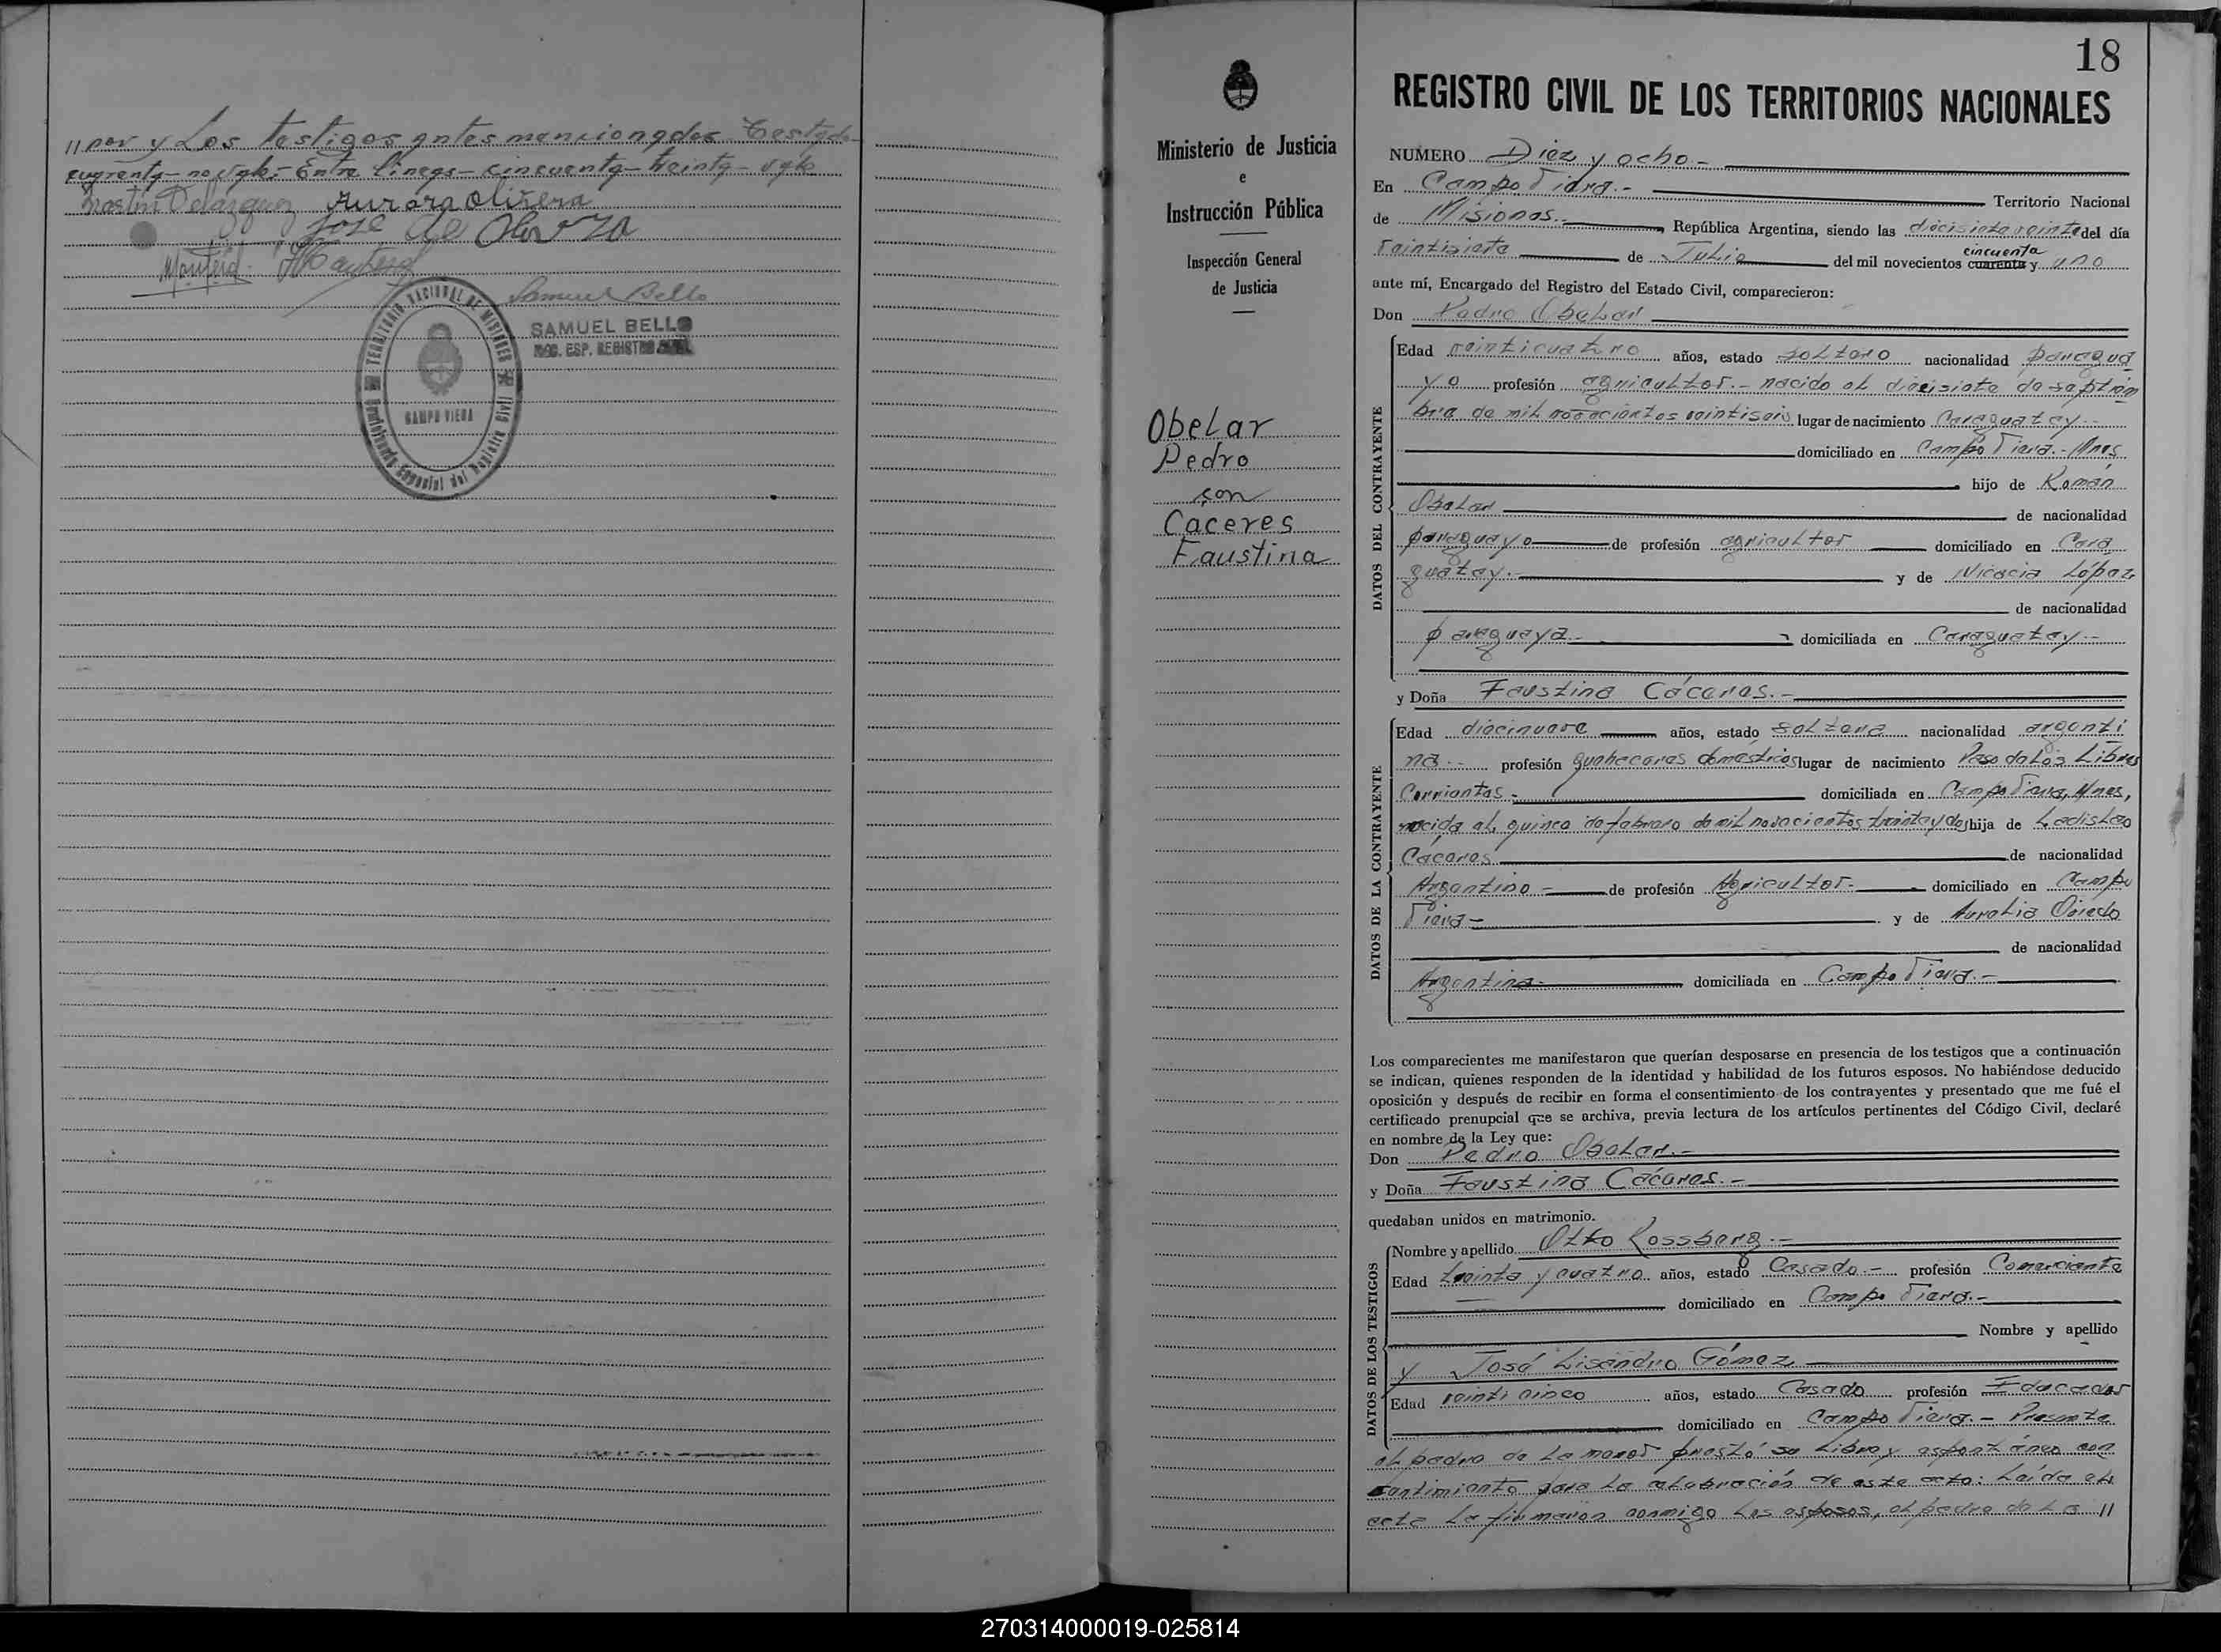 // nor y Los testigos antes mencionados. Testado-
cuarenta - no vale.- Entre lineas - cincuenta - treinta - vale
Martin Velazquez Aurora Olivera
José de
SAMUEL BELLO
ENC. ESP. REGISTRO CIVIL
TERRITORIO NACIONAL DE MISIONES
CAMPO VIERA
Encargado Especial del Registro Civil
18
Ministerio de Justicia
e
Instrucción Pública
Inspección General
de Justicia
Obelar
Pedro
con
Caceres
Faustina
REGISTRO CIVIL DE LOS TERRITORIOS NACIONALES
NUMERO Diez y ocho.-
En Campo Viera.- Territorio Nacional
de Misiones. República Argentina, siendo las diecisiete veinte del día
cincuenta
veintisiete de Julio del mil novecientos cuarenta y uno
ante mí, Encargado del Registro del Estado Civil, comparecieron:
Don Pedro Obelar
DATOS DEL CONTRAYENTE
Edad veinticuatro años, estado soltero nacionalidad paragua
yo profesión agricultor.- nacido el diecisiete de septiem
bre de mil novecientos veintiseis lugar de nacimiento Caraguatay.-
domiciliado en Campo Viera.- Mnes
hijo de Román
Obelar de nacionalidad
paraguayo de profesión agricultor domiciliado en Cara
guatay.- y de Nicacia López
de nacionalidad
paraguaya.- domiciliada en Caraguatay.-
y Doña Faustina Cáceres.-
DATOS DE LA CONTRAYENTE
Edad diecinueve años, estado soltera nacionalidad argenti
na.- profesión quehaceres domésticos lugar de nacimiento Paso de Los Libres
Corrientes.- domiciliada en Campo Viera, Mnes,
nacida el quince de febrero de mil novecientos treinta y dos hija de Ladislao
Cáceres de nacionalidad
Argentino - de profesión Agricultor.- domiciliado en Campo
Viera - y de Aurelia Oviedo
de nacionalidad
Argentina.- domiciliada en Campo Viera.-
Los comparecientes me manifestaron que querían desposarse en presencia de los testigos que a continuación
se indican, quienes responden de la identidad y habilidad de los futuros esposos. No habiéndose deducido
oposición y después de recibir en forma el consentimiento de los contrayentes y presentado que me fué el
certificado prenupcial que se archiva, previa lectura de los artículos pertinentes del Código Civil, declaré
en nombre de la Ley que:
Don Pedro Obelar.-
y Doña Faustina Cáceres.-
quedaban unidos en matrimonio.
DATOS DE LOS TESTIGOS
Nombre y apellido Otto Rossberg.-
Edad treinta y cuatro años, estado Casado.- profesión Comerciante
domiciliado en Campo Viera.-
Nombre y apellido
y José Lisandro Gómez
Edad veinticinco años, estado Casado profesión
domiciliado en Campo Viera.- Presente
el padre de la menor prestó su libre y espontáneo con
sentimiento para la celebración de este acto: Leída el
acta la firmaron conmigo los esposos, el padre de la //
270314000019-025814